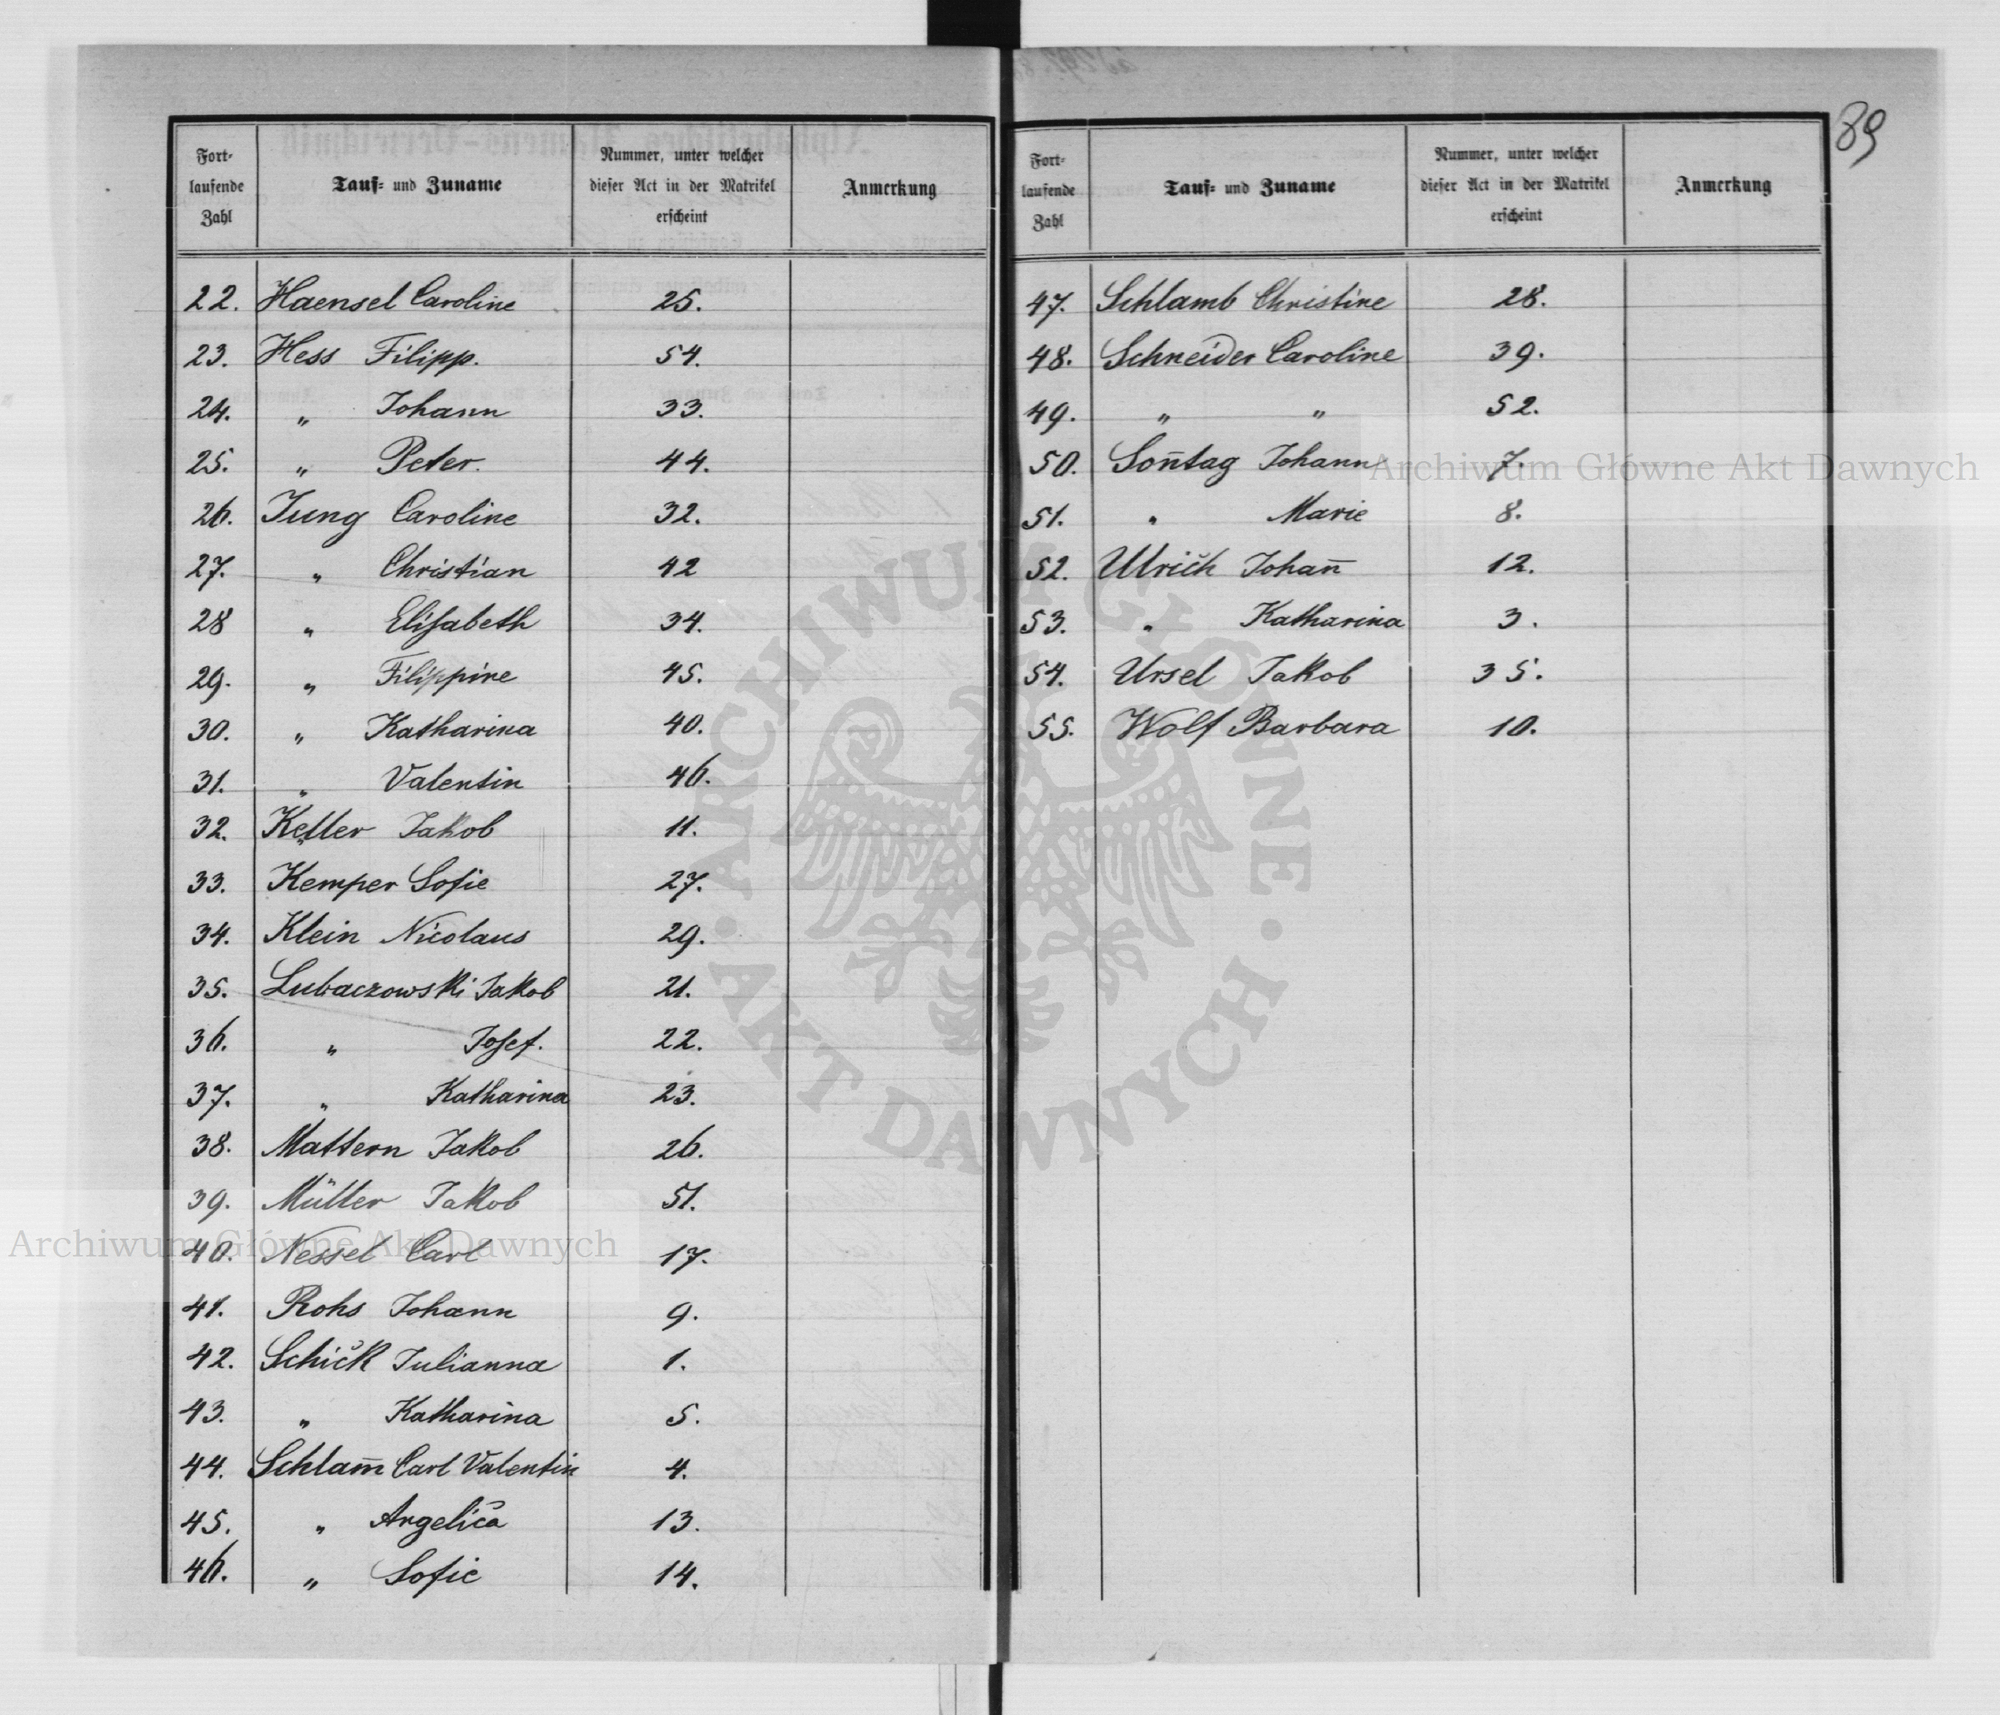 89
Fort-
laufende
Zahl
Tauf- und Zuname
Nummer, unter welcher
dieser Act in der Matrikel
erscheint
Anmerkung
22. Haensel Caroline 25.
23. Hess Filipp. 54.
24. „ Johann 33.
25. „ Peter. 44.
26. Jung Caroline 32.
27. „ Christian 42
28 „ Elisabeth 34.
29. „ Filippine 45.
30. „ Katharina 40.
31. „ Valentin 46.
32. Keller Jakob 11.
33. Kemper Sofie 27.
34. Klein Nicolaus 29.
35. Lubaczowski Jakob 21.
36. „ Josef. 22.
37. „ Katharina 23.
38. Mattern Jakob 26.
39. Müller Jakob 51.
40. Nessel Carl 17.
41. Rohs Johann 9.
42. Schick Julianna 1.
43. „ Katharina 5.
44. Schlam̅ Carl Valentin 4.
45. „ Angelica 13.
46. „ Sofie 14.
Fort-
laufende
Zahl
Tauf- und Zuname
Nummer, unter welcher
dieser Act in der Matrikel
erscheint
Anmerkung
47. Schlamb Christine 28.
48. Schneider Caroline 39.
49. „ „ 52.
50. Son̅tag Johann 7.
51. „ Marie 8.
52. Ulrich Johan̅ 12.
53. „ Katharina 3.
54. Ursel Jakob 35.
55. Wolf Barbara 10.
Archiwum Główne Akt Dawnych
Archiwum Główne Akt Dawnych
ARCHIWUM GŁÓWNE · AKT DAWNYCH ·